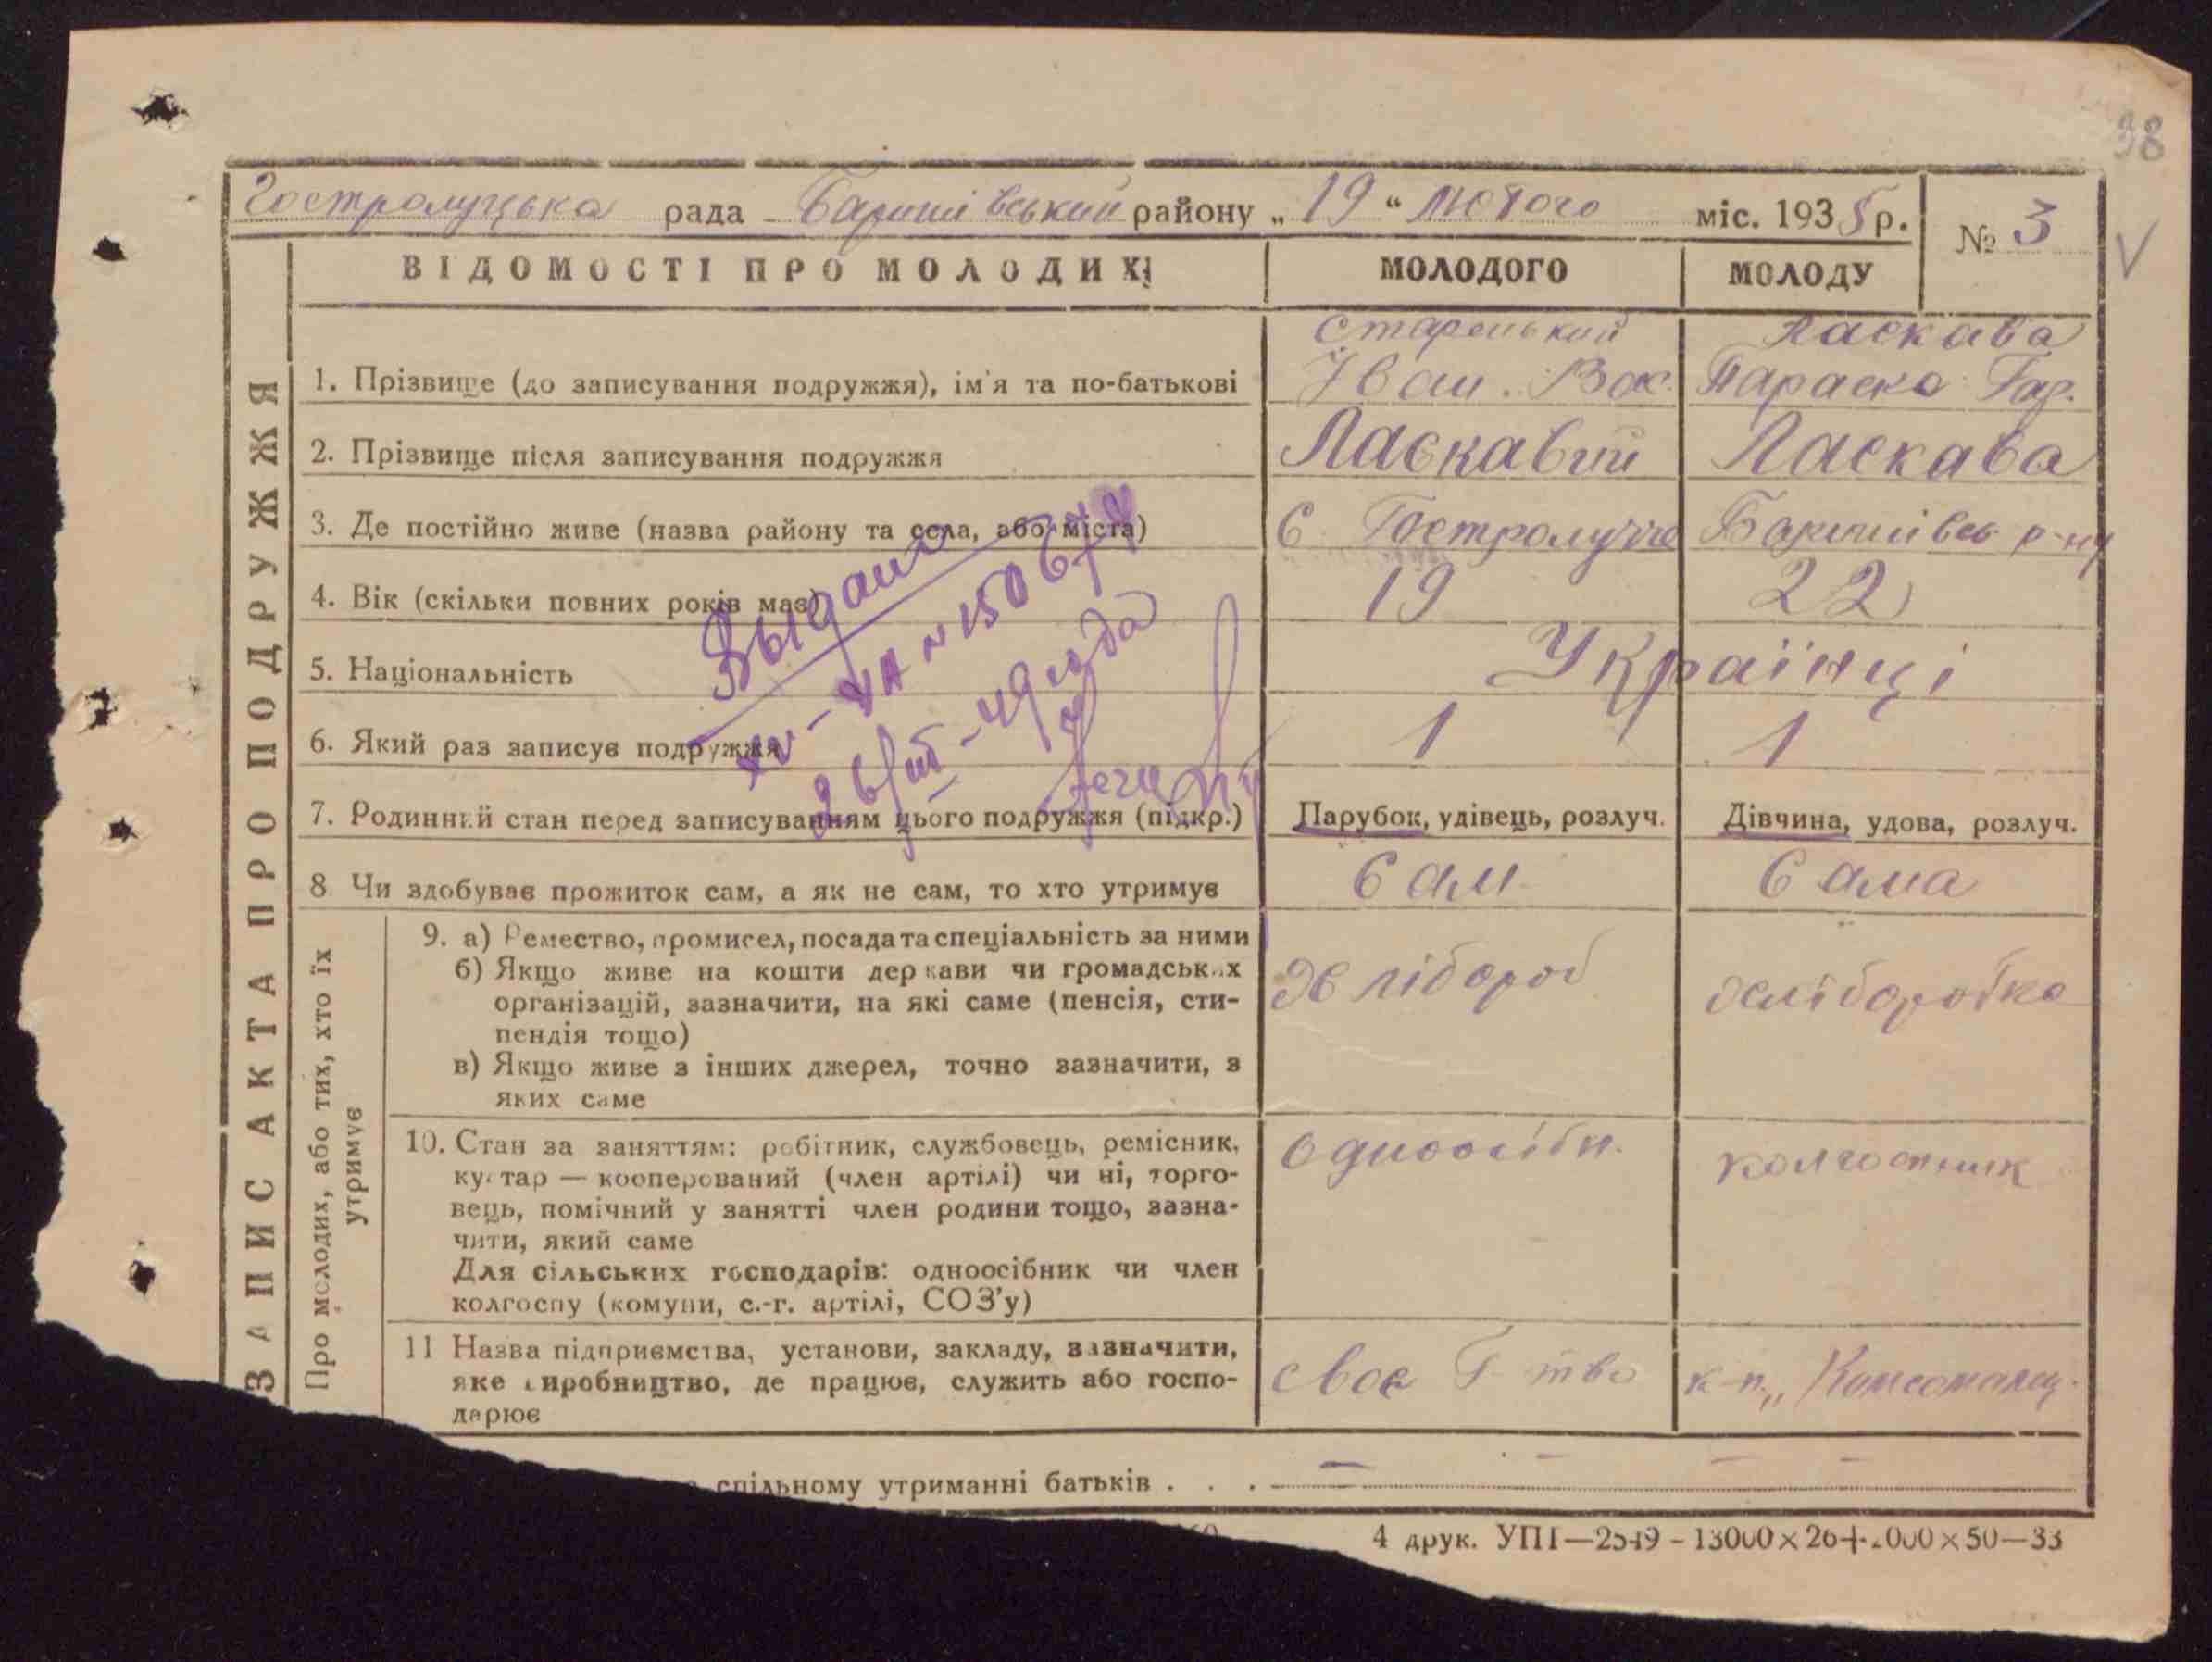 38
Гостролуцька рада Баришівський району „19“ лютого міс. 1935 р. № 3
V
ВІДОМОСТІ ПРО МОЛОДИХ МОЛОДОГО МОЛОДУ
Старенький Ласкава
1. Прізвище (до записування подружжя), ім'я та по-батькові Іван. Вас. Параска Гар.
2. Прізвище після записування подружжя Ласкавий Ласкава
3. Де постійно живе (назва району та села, або міста) С Гостролуччє Баришівсь р-ну
4. Вік (скільки повних років має) 19 22
5. Національність Українці
6. Який раз записує подружжя 1 1
7. Родинний стан перед записуванням цього подружжя (підкр.) Парубок, удівець, розлуч. Дівчина, удова, розлуч.
8 Чи здобуває прожиток сам, а як не сам, то хто утримує Сам Сама
9. а) Ремество, промисел, посада та спеціальність за ними
б) Якщо живе на кошти держави чи громадських
організацій, зазначити, на які саме (пенсія, сти-
пендія тощо)
в) Якщо живе з інших джерел, точно зазначити, з
яких саме
хлібороб хліборобка
10. Стан за заняттям: робітник, службовець, ремісник,
кустар — кооперований (член артілі) чи ні, торго-
вець, помічний у занятті член родини тощо, зазна-
чити, який саме
Для сільських господарів: одноосібник чи член
колгоспу (комуни, с.-г. артілі, СОЗ'у)
одноосібн. колгоспник
11 Назва підприємства, установи, закладу, зазначити,
яке виробництво, де працює, служить або госпо-
дарює
своє г-тво к-п „Комсомолец.
спільному утриманні батьків . . . — — — —
4 друк. УПТ—2549 - 13000×26+2000×50—33
ЗАПИС АКТА ПРО ПОДРУЖЖЯ
Про молодих, або тих, хто їх
утримує
Выдано
26/III-49 года